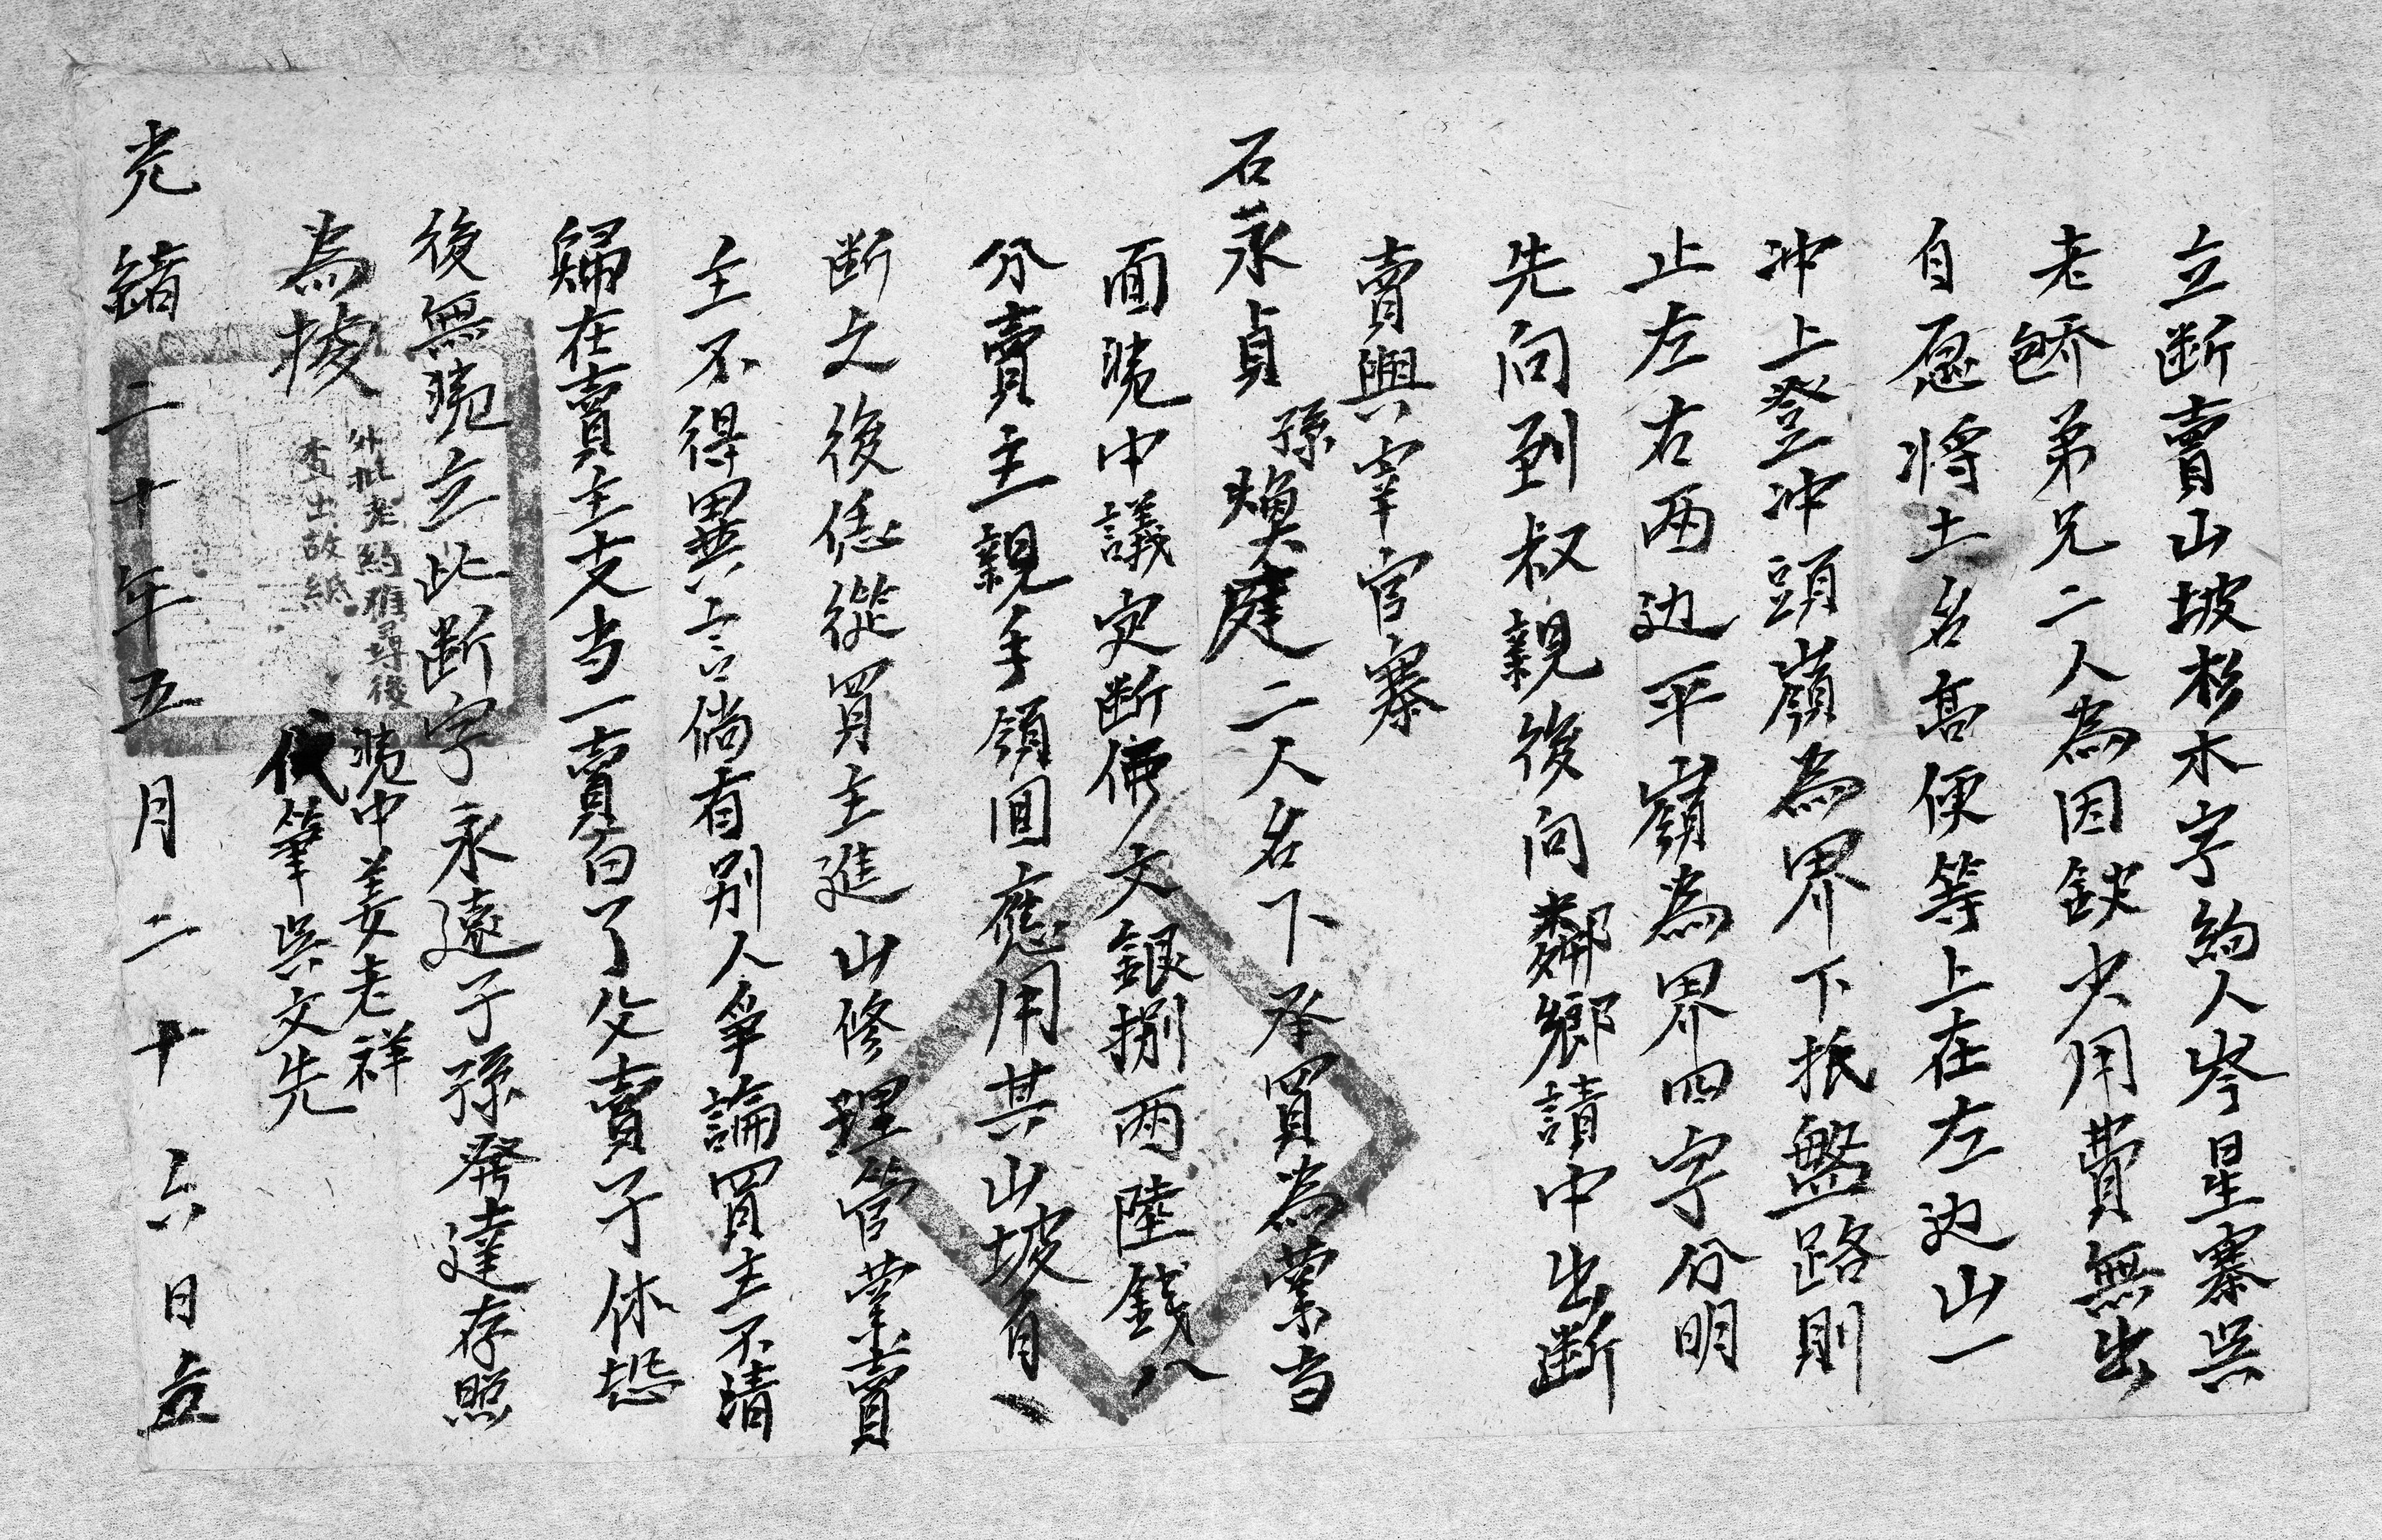 立断賣山坡杉木字約人岑星寨吳
老  弟兄二人為因缺少用費無出
自愿将土名高便等上在左边山一
冲上登冲頭嶺為界下抵盤路則
止左右两边平嶺為界四字分明
先问到叔親後问鄰鄉請中出断
賣與宰官寨
石永貞孫煥庭二人名下承買為業当
面凴中議定断價文銀捌两陸錢八
分賣主親手領囬應用其山坡自、
断之後恁從買主進山修理管業賣
主不得異言倘有别人争論買主不清
歸在賣主支当一賣百了父賣子休恐
後無凴立此断字永遠子孫發達存照
為據
外批老約難尋後
查出故紙
凴中姜老祥
代筆吳文先
光緒二十年五月二十六日立